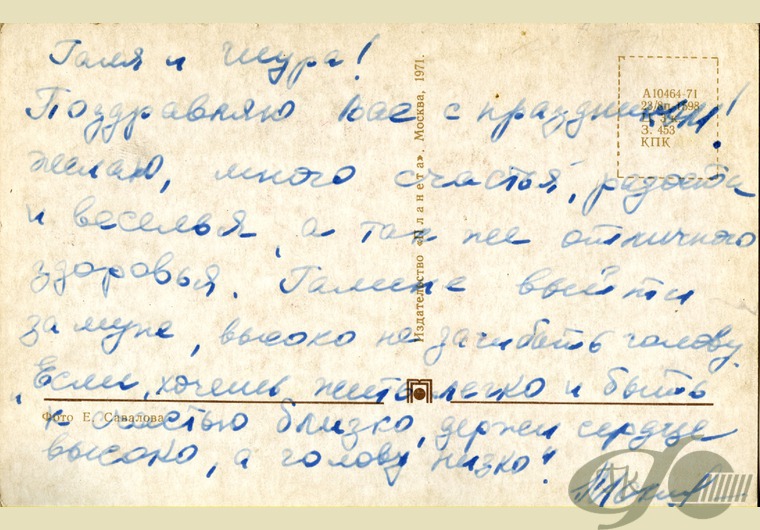 Галя и Шура!
Поздравляю Вас с праздником!
желаю, много счастья, радости
и веселья, а так же отличного
здоровья. Галине выйти
замуж, высоко не загибать голову.
„Если, хочешь жить легко и быть
к счастью близко, держи сердце
высоко, а голову низко"
Издательство «Планета». Москва, 1971.
А10464-71
З. 453
КПК
Фото Е. Савалова